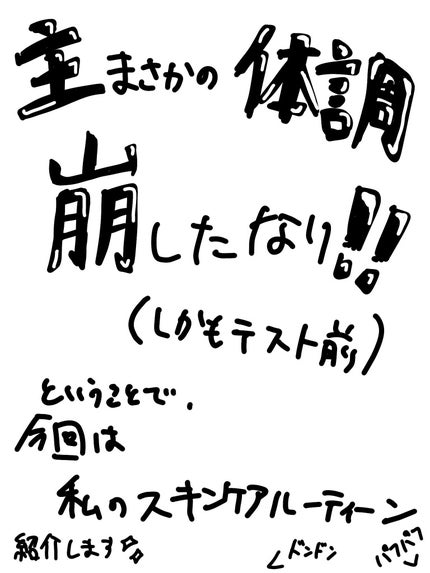 主まさかの体調
崩したなり!!
(しかもテスト前)
ということで、
今回は
私のスキンケアルーティーン
紹介します✨
ドンドン
パフパフ